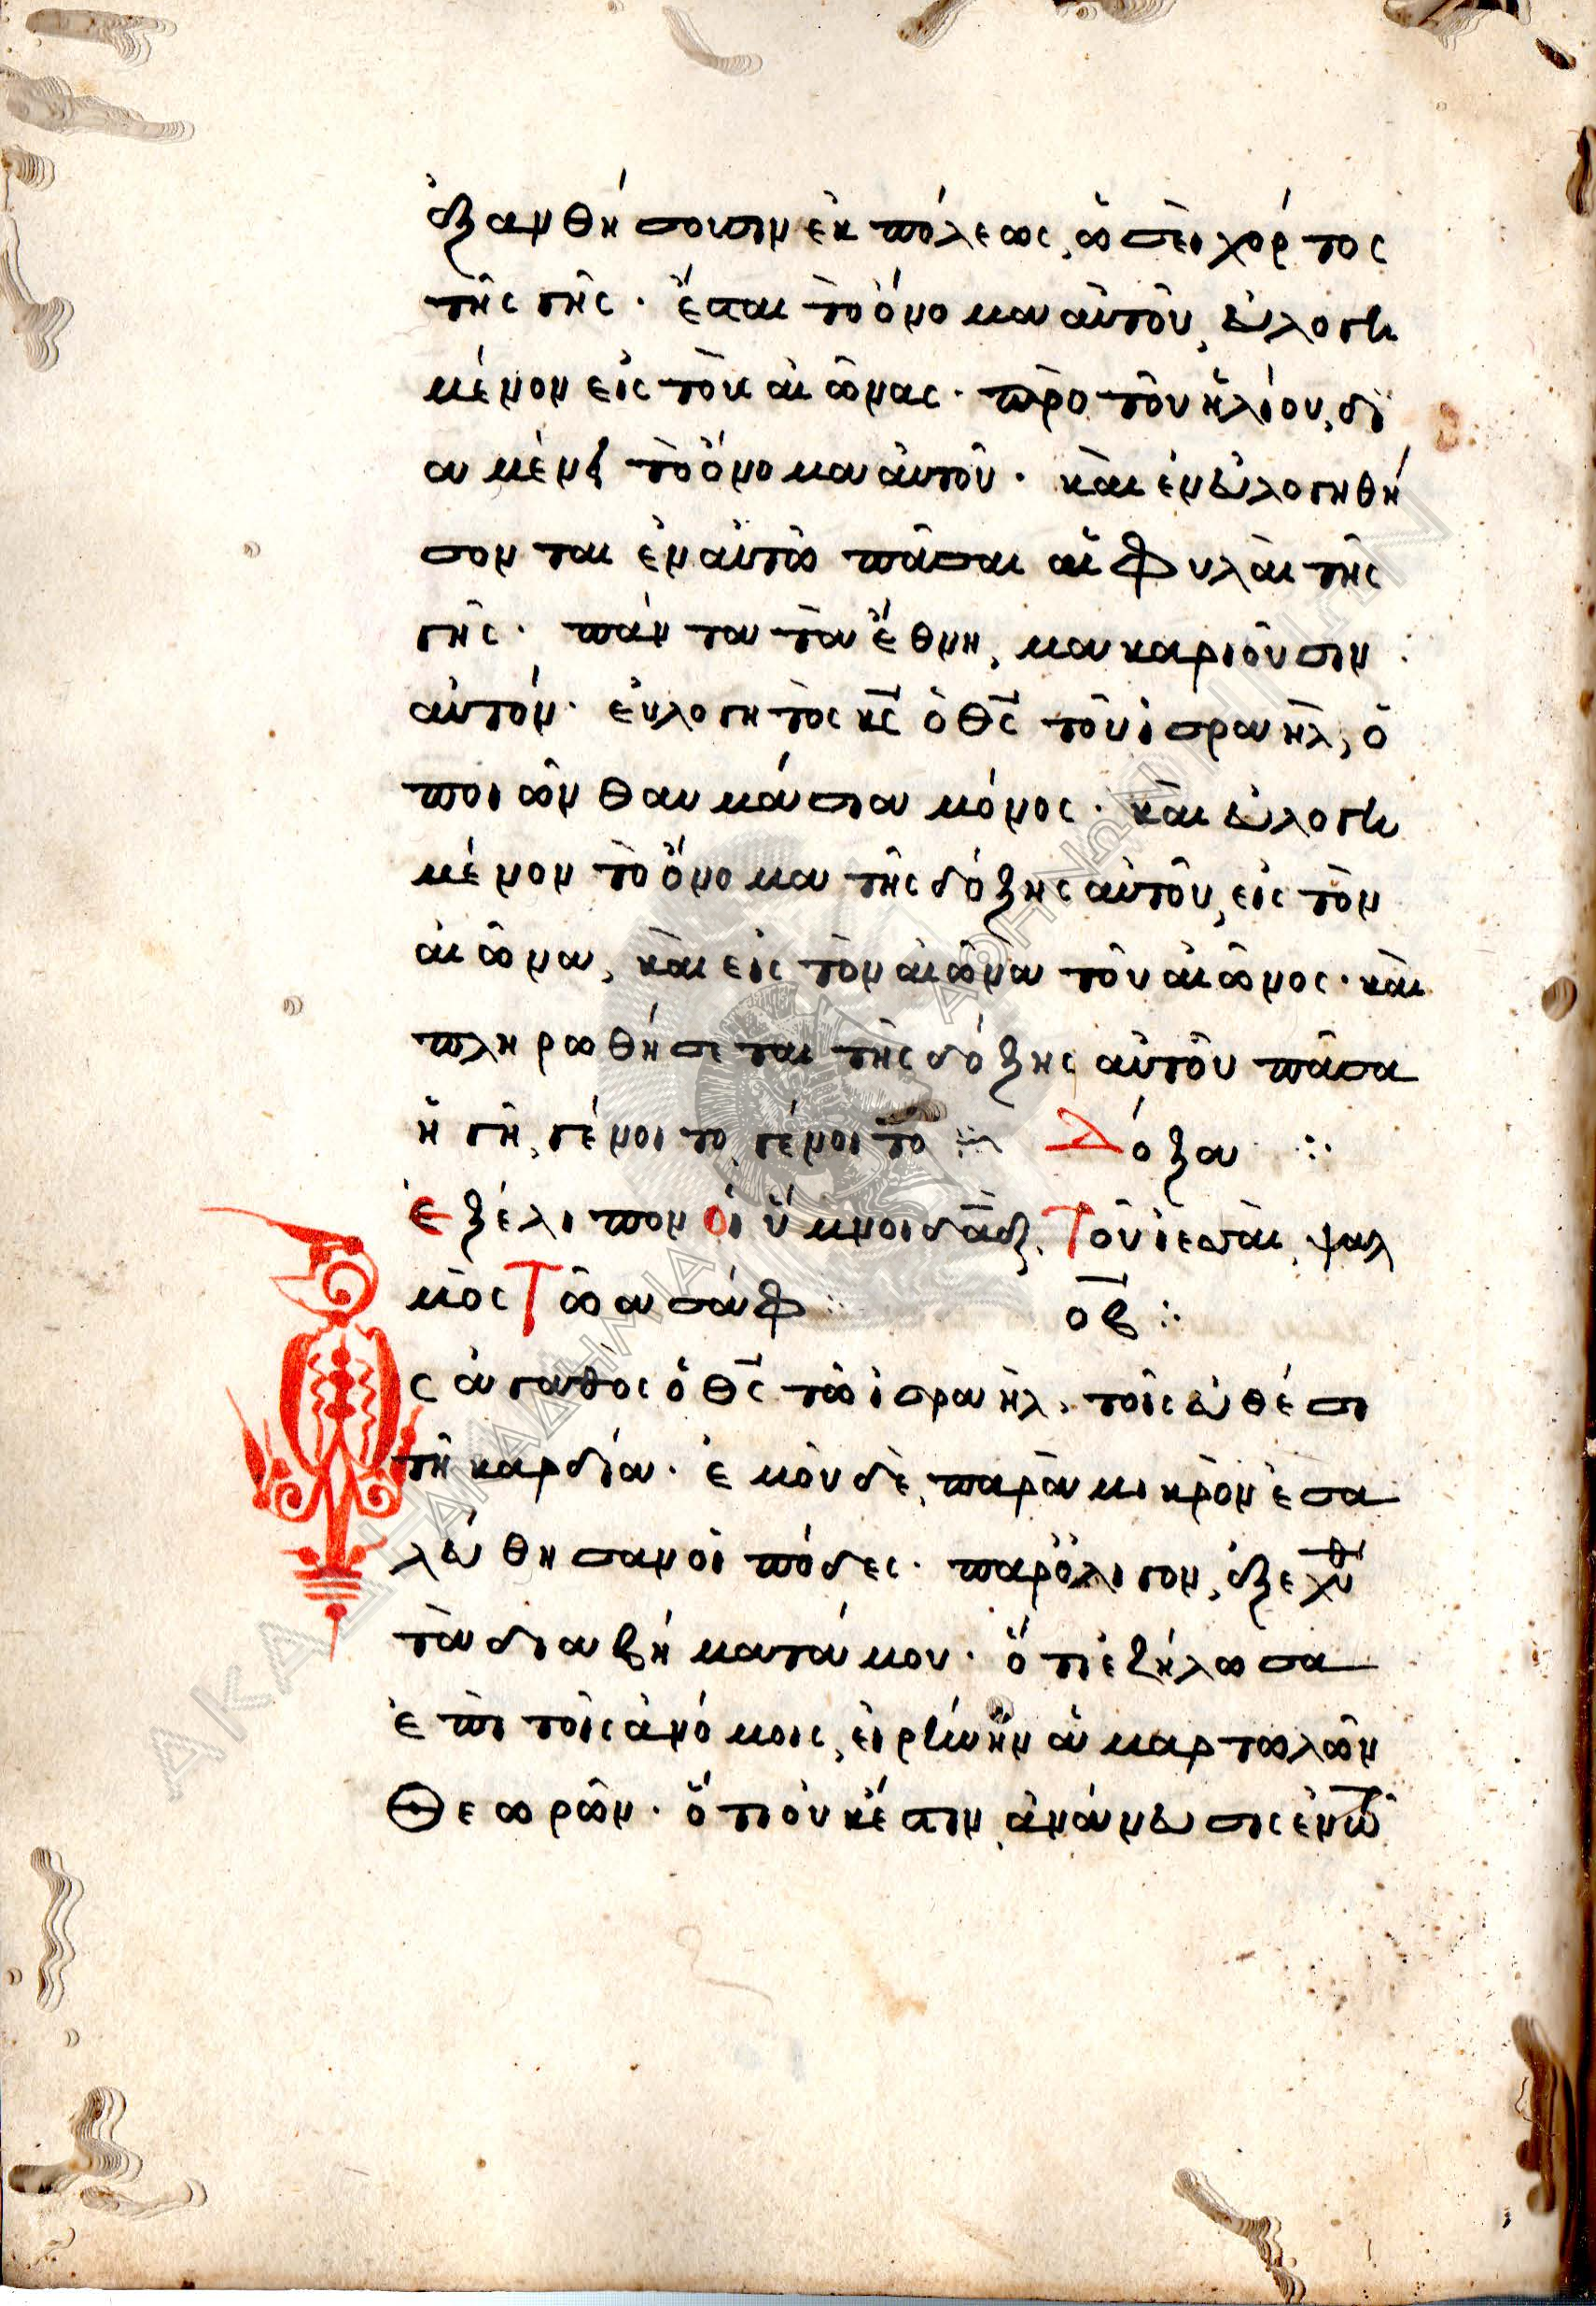 ἐξανθήσουσιν ἐκ πόλεως, ὡσεὶ χόρτος
τῆς γῆς· ἔσται τὸ ὄνομα αὐτοῦ, εὐλογη
μένον εἰς τοὺς αἰῶνας· πρὸ τοῦ ἡλίου, δι
αμένει τὸ ὄνομα αὐτοῦ· καὶ ἐνευλογηθή
σονται ἐν αὐτῶ πᾶσαι αἱ φυλαὶ τῆς
γῆς· πάντα τὰ ἔθνη, μακαριοῦσιν
αὐτόν· εὐλογητὸς κς ὁ θς τοῦ ἰσραὴλ, ὁ
ποιῶν θαυμάσια μόνος· καὶ εὐλογη
μένον τὸ ὄνομα τῆς δόξης αὐτοῦ, εἰς τὸν
αἰῶνα, καὶ εἰς τὸν αἰῶνα τοῦ αἰῶνος· καὶ
πληρωθήσεται τῆς δόξης αὐτοῦ πᾶσα
ἡ γῆ, γένοιτο, γένοιτο ⁘ Δόξα ⁘
Ἐξέλιπον οἱ ὕμνοι δαδ, Τοῦ ἰεσσαὶ, ψαλ
μὸς Τῶ ασάφ ⁘ οβ ⁘
Ὡς ἀγαθὸς ὁ θς τῶ ἰσραὴλ, τοῖς εὐθέσι
τῆ καρδία· ἐμοῦ δὲ, παρὰ μικρὸν ἐσα
λεύθησαν οἱ πόδες· παρ' ὀλίγον, ἐξεχύθη
τὰ διαβήματά μου· ὅτι ἐζήλωσα
ἐπὶ τοῖς ἀνόμοις, εἰρήνην ἁμαρτωλῶν
Θεωρῶν· ὅτι οὐκ ἔστιν, ἀνάνευσις ἐν τῶ